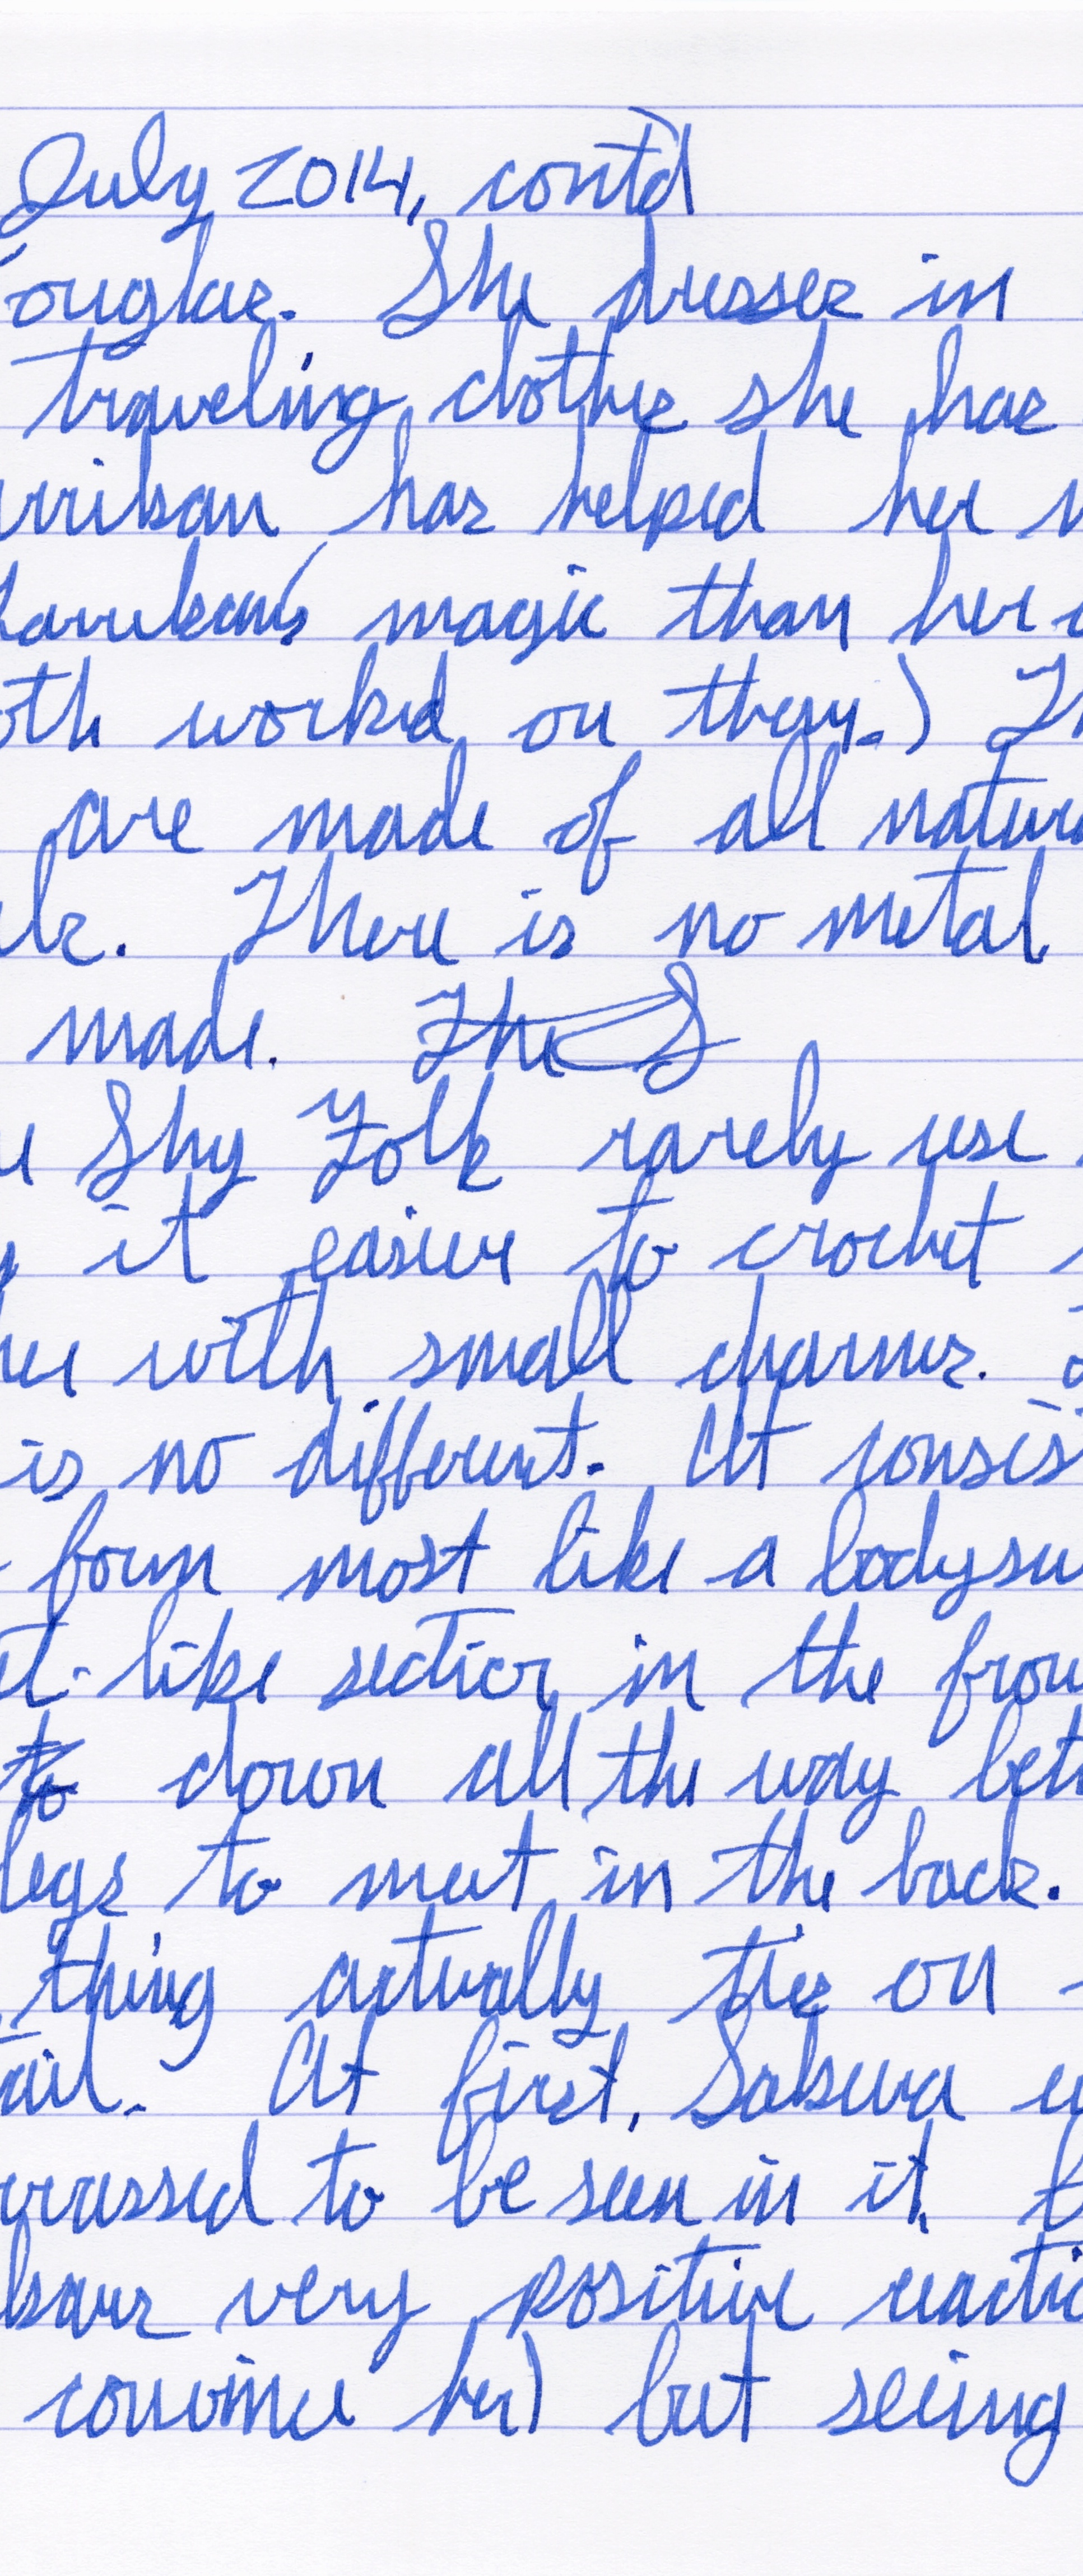 July 2014, contd
ouglas. She dresses in
traveling clothes she has
rrikan has helped her
Harrikan's magic than her
oth worked on them.) Th
are made of all natura
ls. There is no metal
made. The S
Shy Folk rarely use
it easier to crochet
with small charms.
is no different. It consis
form most like a bodysu
t-like section in the fron
to down all the way bet
legs to meet in the back.
thing actually ties on
ail. At first, Sakura w
rrassed to be seen in it,
kans very positive reactio
convince her) but seeing